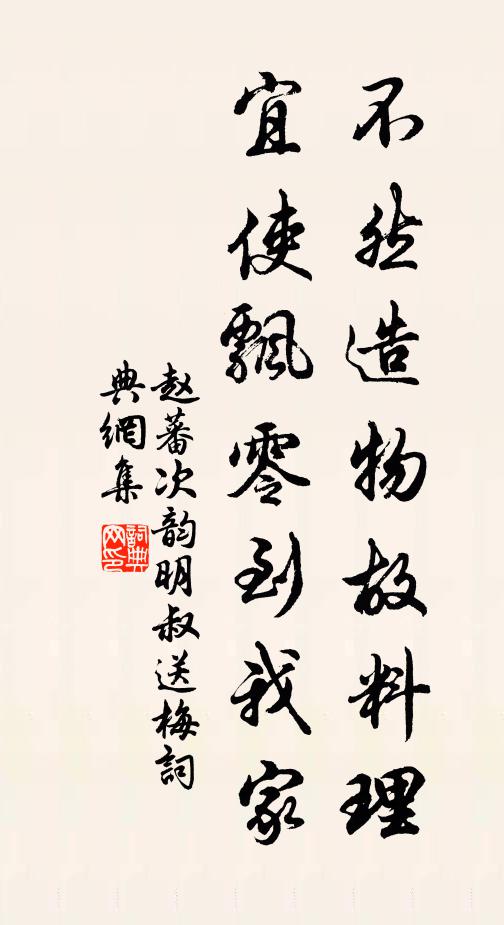 不然造物故料理
宜使飄零到我家
赵蕃次韵明叔送梅詞
典網集
詞典
网印